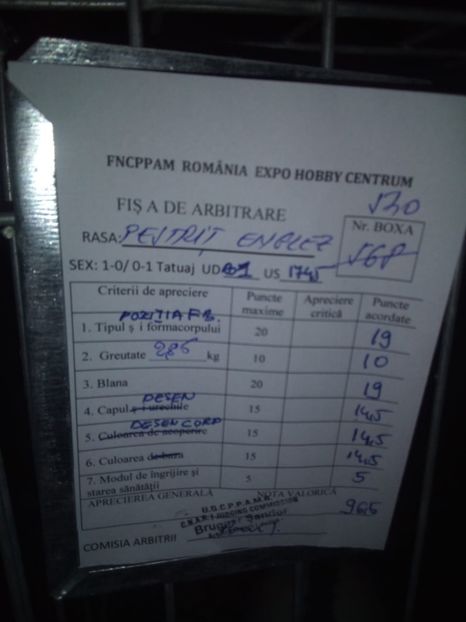 FNCPPAM ROMÂNIA EXPO HOBBY CENTRUM
FIȘ A DE ARBITRARE
RASA: PESTRIT ENGLEZ
Nr. BOXA
568
SEX: 1-0/ 0-1 Tatuaj UD US 1745
Criterii de apreciere Puncte maxime Apreciere critică Puncte acordate
POZITIA
1. Tipul ș i formacorpului 20 19
2. Greutate 2,85 kg 10 10
3. Blana 20 19
DESEN
4. Capul ș i urechile 15 14,5
DESEN CORP
5. Culoarea de acoperire 15 14,5
6. Culoarea de baza 15 14,5
7. Modul de îngrijire și starea sănătății 5 5
APRECIEREA GENERALĂ NOTA VALORICĂ 96,5
U.G.C.P.P.A.M.R.
JUDGING COMMISSION
COMISIA ARBITRII